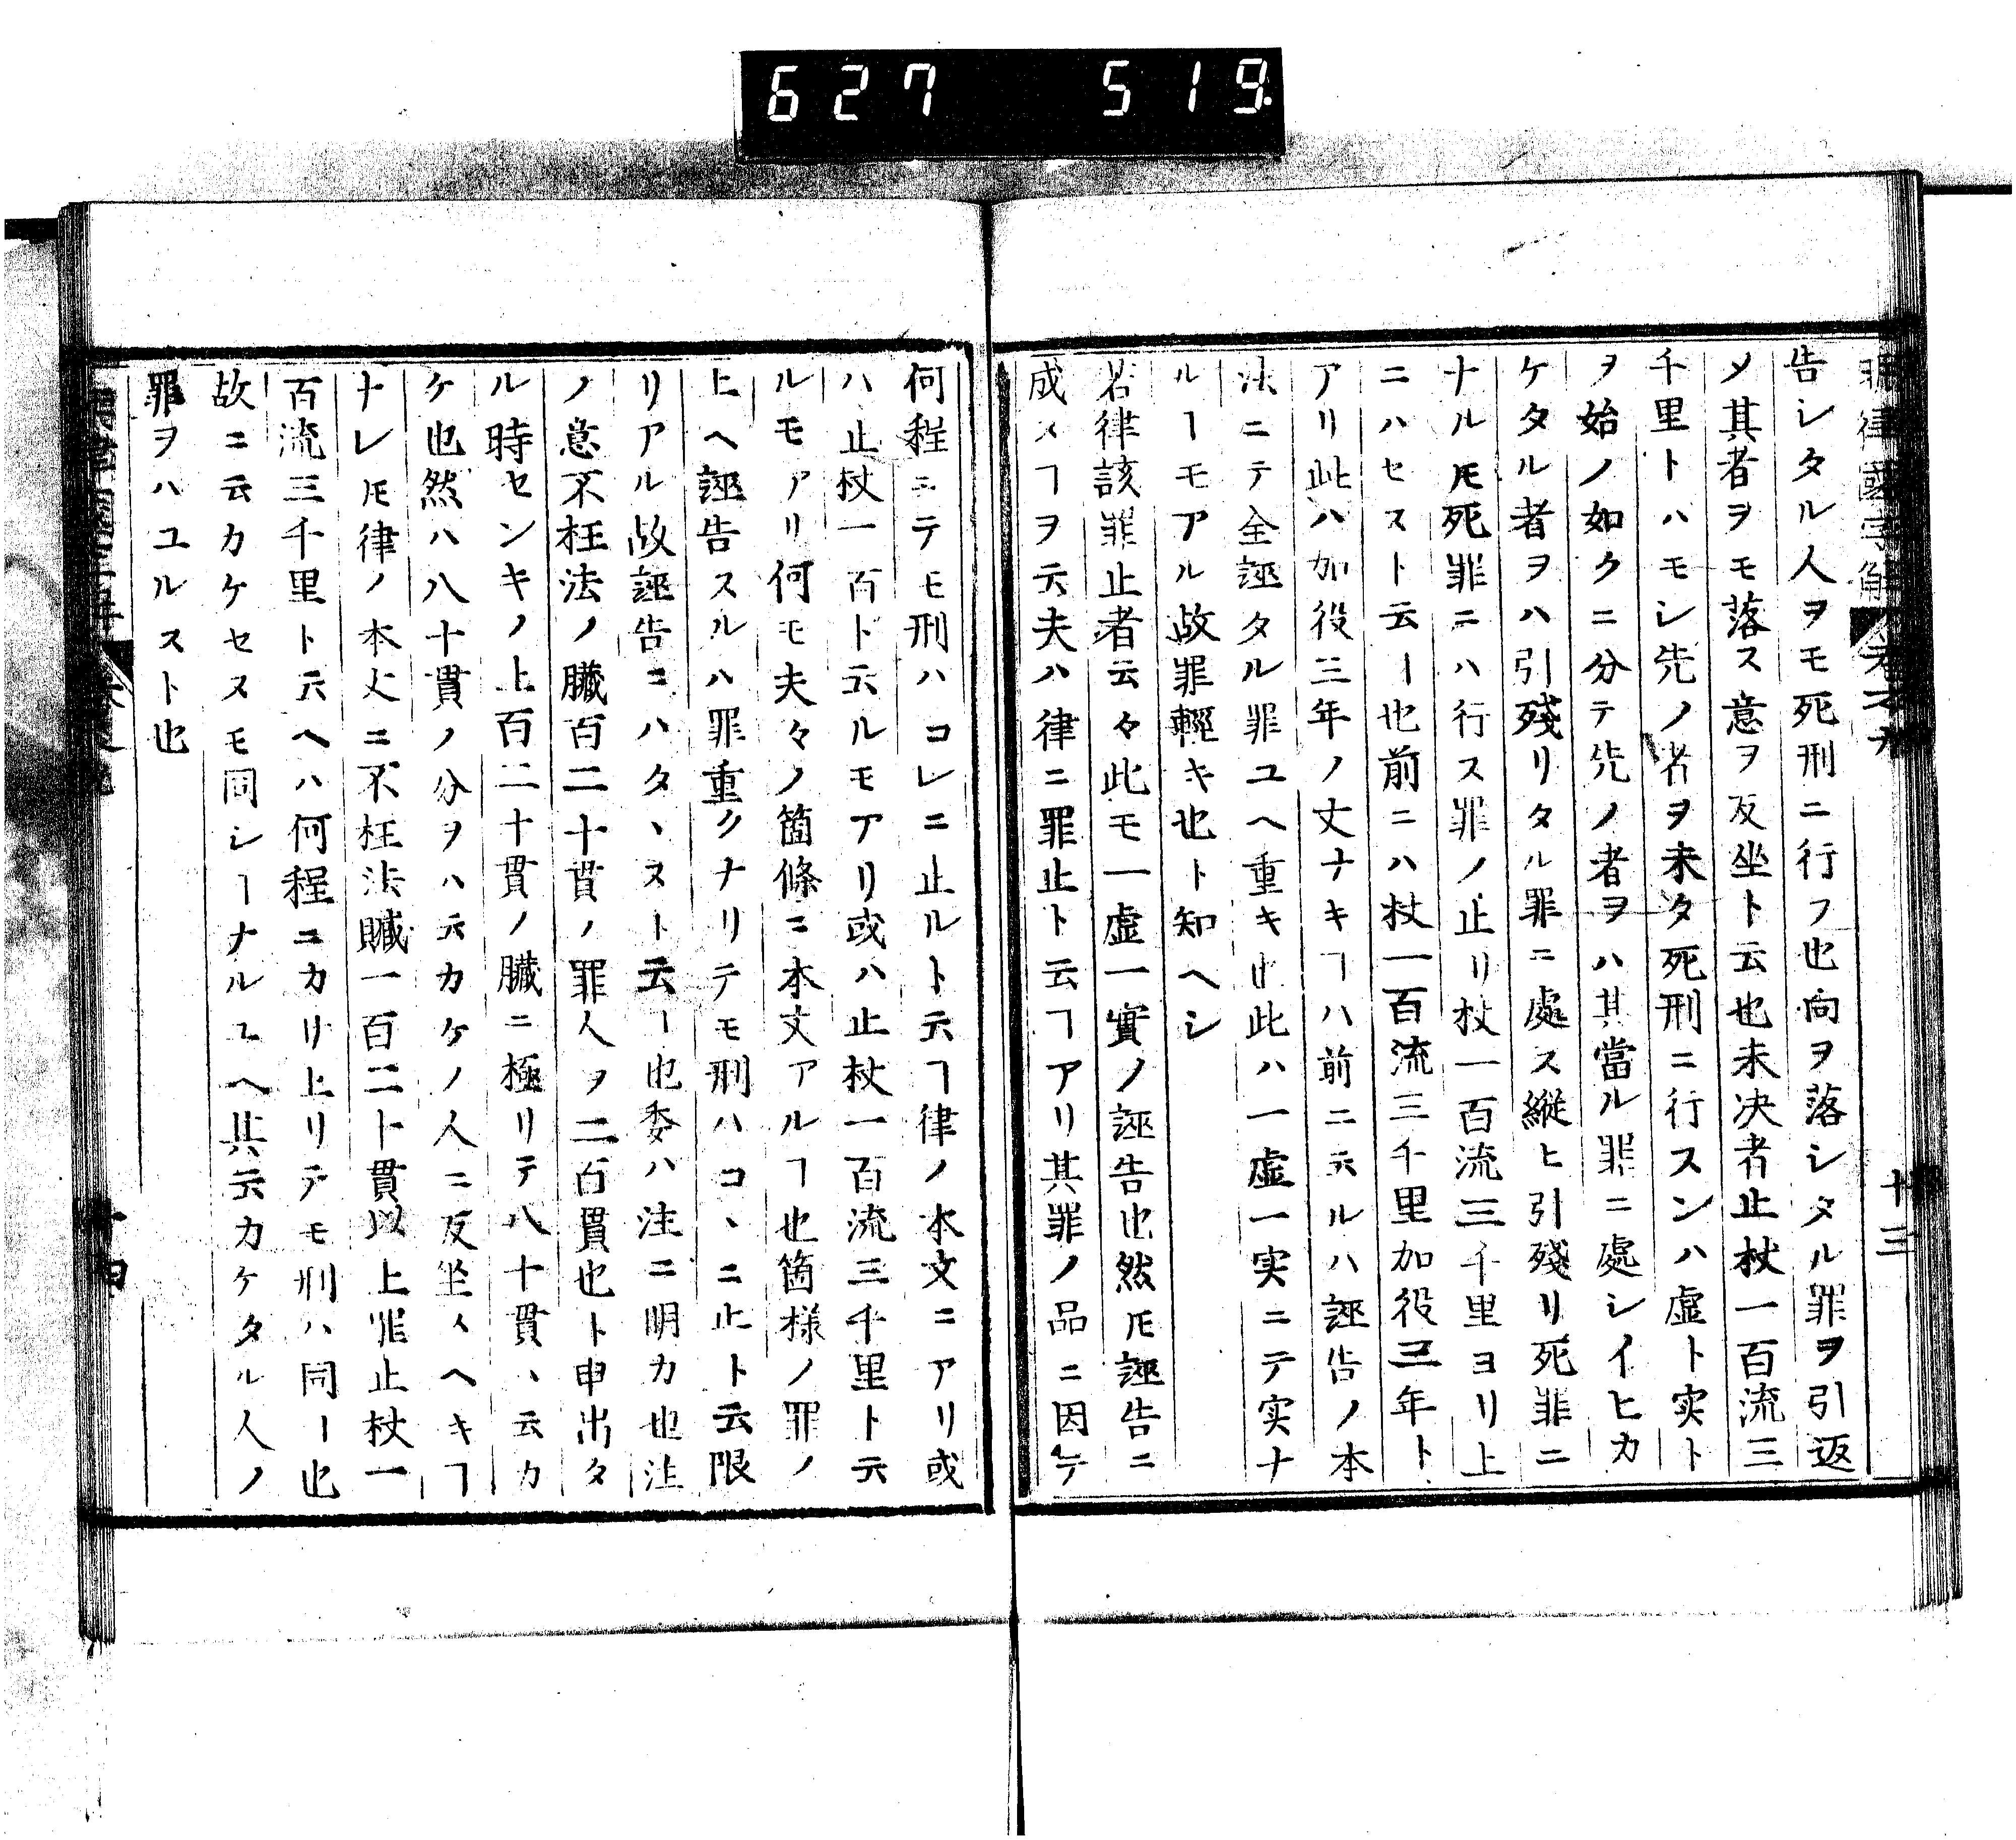 627 519
明律國字解 卷之九 十三
告シタル人ヲモ死刑ニ行フ也向ヲ落シタル罪ヲ引返
メ其者ヲモ落ス意ヲ反坐ト云也未决者止杖一百流三
千里トハモシ先ノ者ヲ未タ死刑ニ行スンハ虚ト実ト
ヲ始ノ如クニ分テ先ノ者ヲハ其當ル罪ニ處シイヒカ
ケタル者ヲハ引殘リタル罪ニ處ス縱ヒ引殘リ死罪ニ
ナルㇳモ死罪ニハ行ス罪ノ止リ杖一百流三千里ヨリ上
ニハセスト云ー也前ニハ杖一百流三千里加役三年ト
アリ此ハ加役三年ノ丈ナキヿハ前ニ云ルハ誣告ノ本
法ニテ全誣タル罪ユヘ重キ也此ハ一虚一実ニテ実ナ
ルーモアル故罪輕キ也ト知ヘシ
若律該罪止者云々此モ一虚一實ノ誣告也然𪜈誣告ニ
成メヿヲ云夫ハ律ニ罪止ト云ヿアリ其罪ノ品ニ因テ
何程ニテモ刑ハコレニ止ルト云ヿ律ノ本文ニアリ或
ハ止杖一百ト云ルモアリ或ハ止杖一百流三千里ト云
ルモアリ何モ夫々ノ箇條ニ本文アルヿ也箇様ノ罪ノ
ヒヘ誣告スルハ罪重クナリテモ刑ハコヽニ止ト云限
リアル故誣告ニハタヽヌト云ー也委ハ注ニ明カ也注
ノ意不枉法ノ臓百二十貫ノ罪人ヲ二百貫也ト申出タ
ル時センキノ上百二十貫ノ臓ニ極リテ八十貫ヽ云カ
ケ也然ハ八十貫ノ分ヲハ云カケノ人ニ反坐メヘキヿ
ナレ𪜈律ノ本文ニ不枉法贓一百二十貫以上罪止杖一
百流三千里ト云ヘハ何程ニカリ上リテモ刑ハ同ー也
故ニ云カケセヌモ同シーナルユヘ其云カケタル人ノ
罪ヲハユルスト也
十四